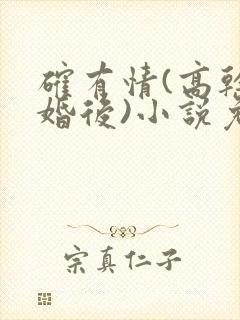 確有情(高幹
婚後)小說免
宗真仁子